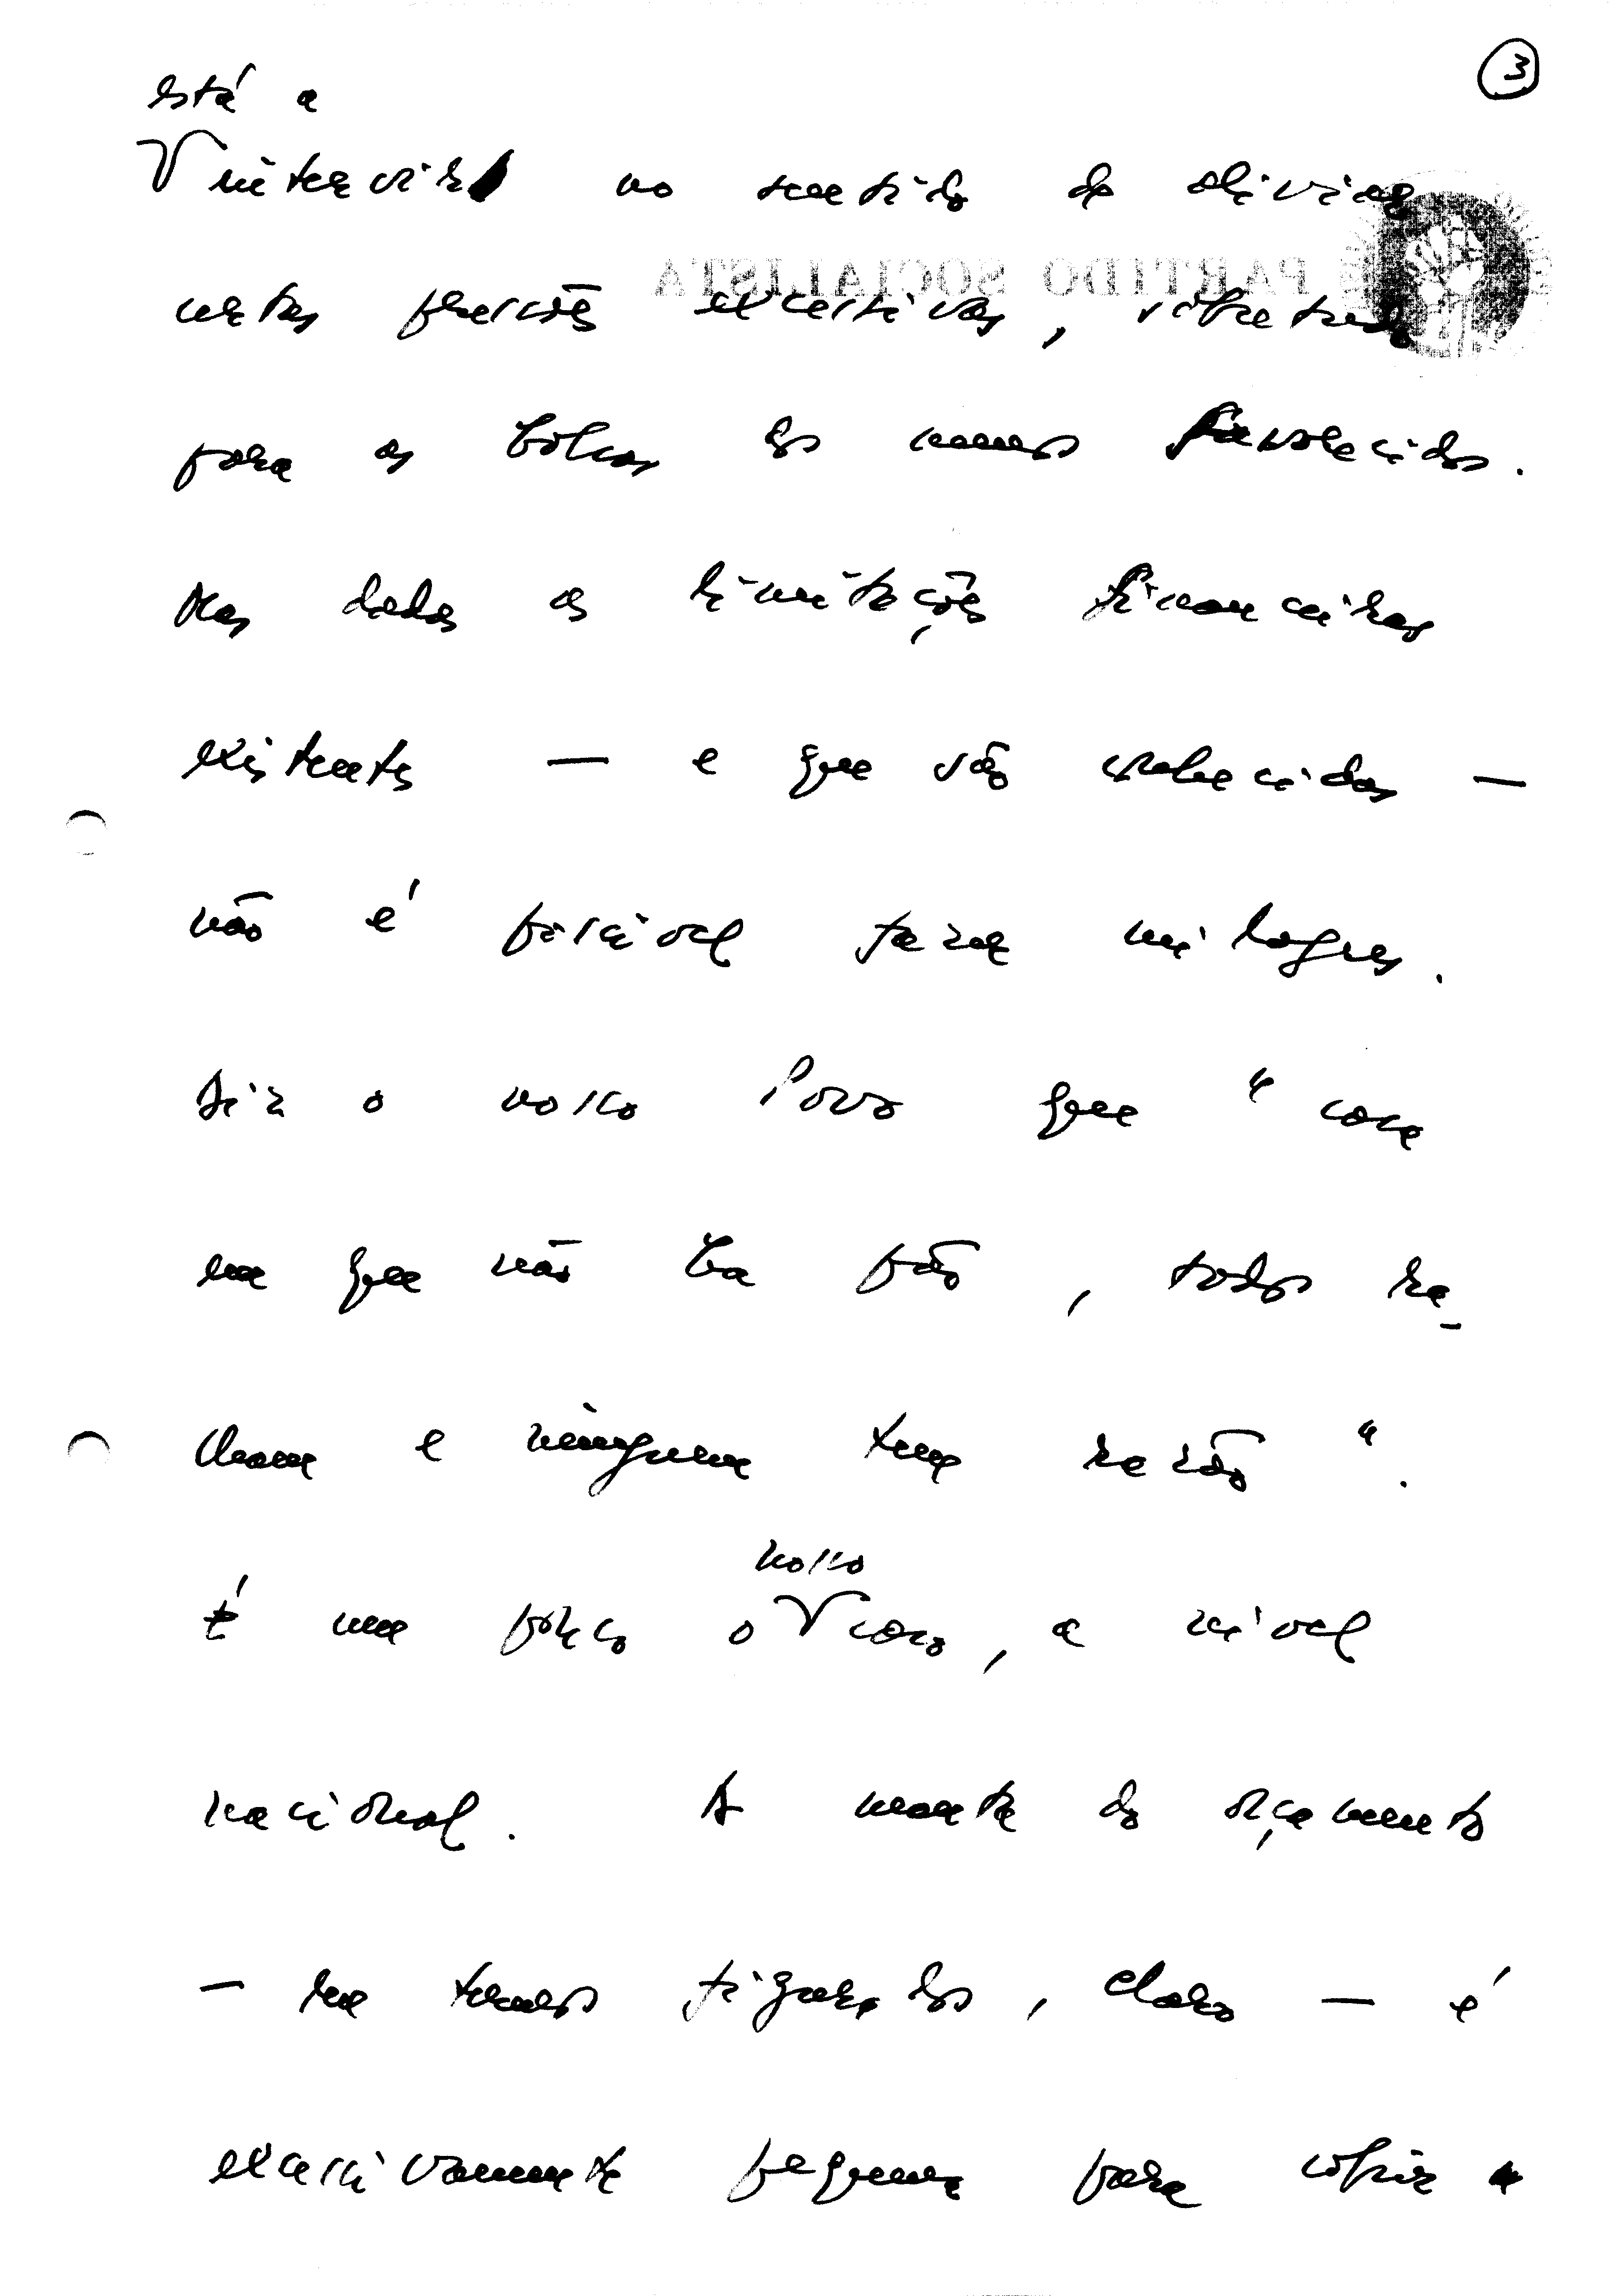 3
está a
intervir no sentido de aliviar
PARTIDO SOCIALISTA
certas pressões excessivas, sobretudo
para as bolsas dos menos favorecidos.
Mas dadas as limitações financeiras
existentes — e que são conhecidas —
não é possível fazer milagres.
Diz o nosso Povo que "casa
em que não há pão, todos ra-
lham e ninguem tem razão".
nosso
É um pouco o caso, a nível
nacional. A manta do orçamento
— em termos figurados, claro — é
excessivamente pequena para cobrir a